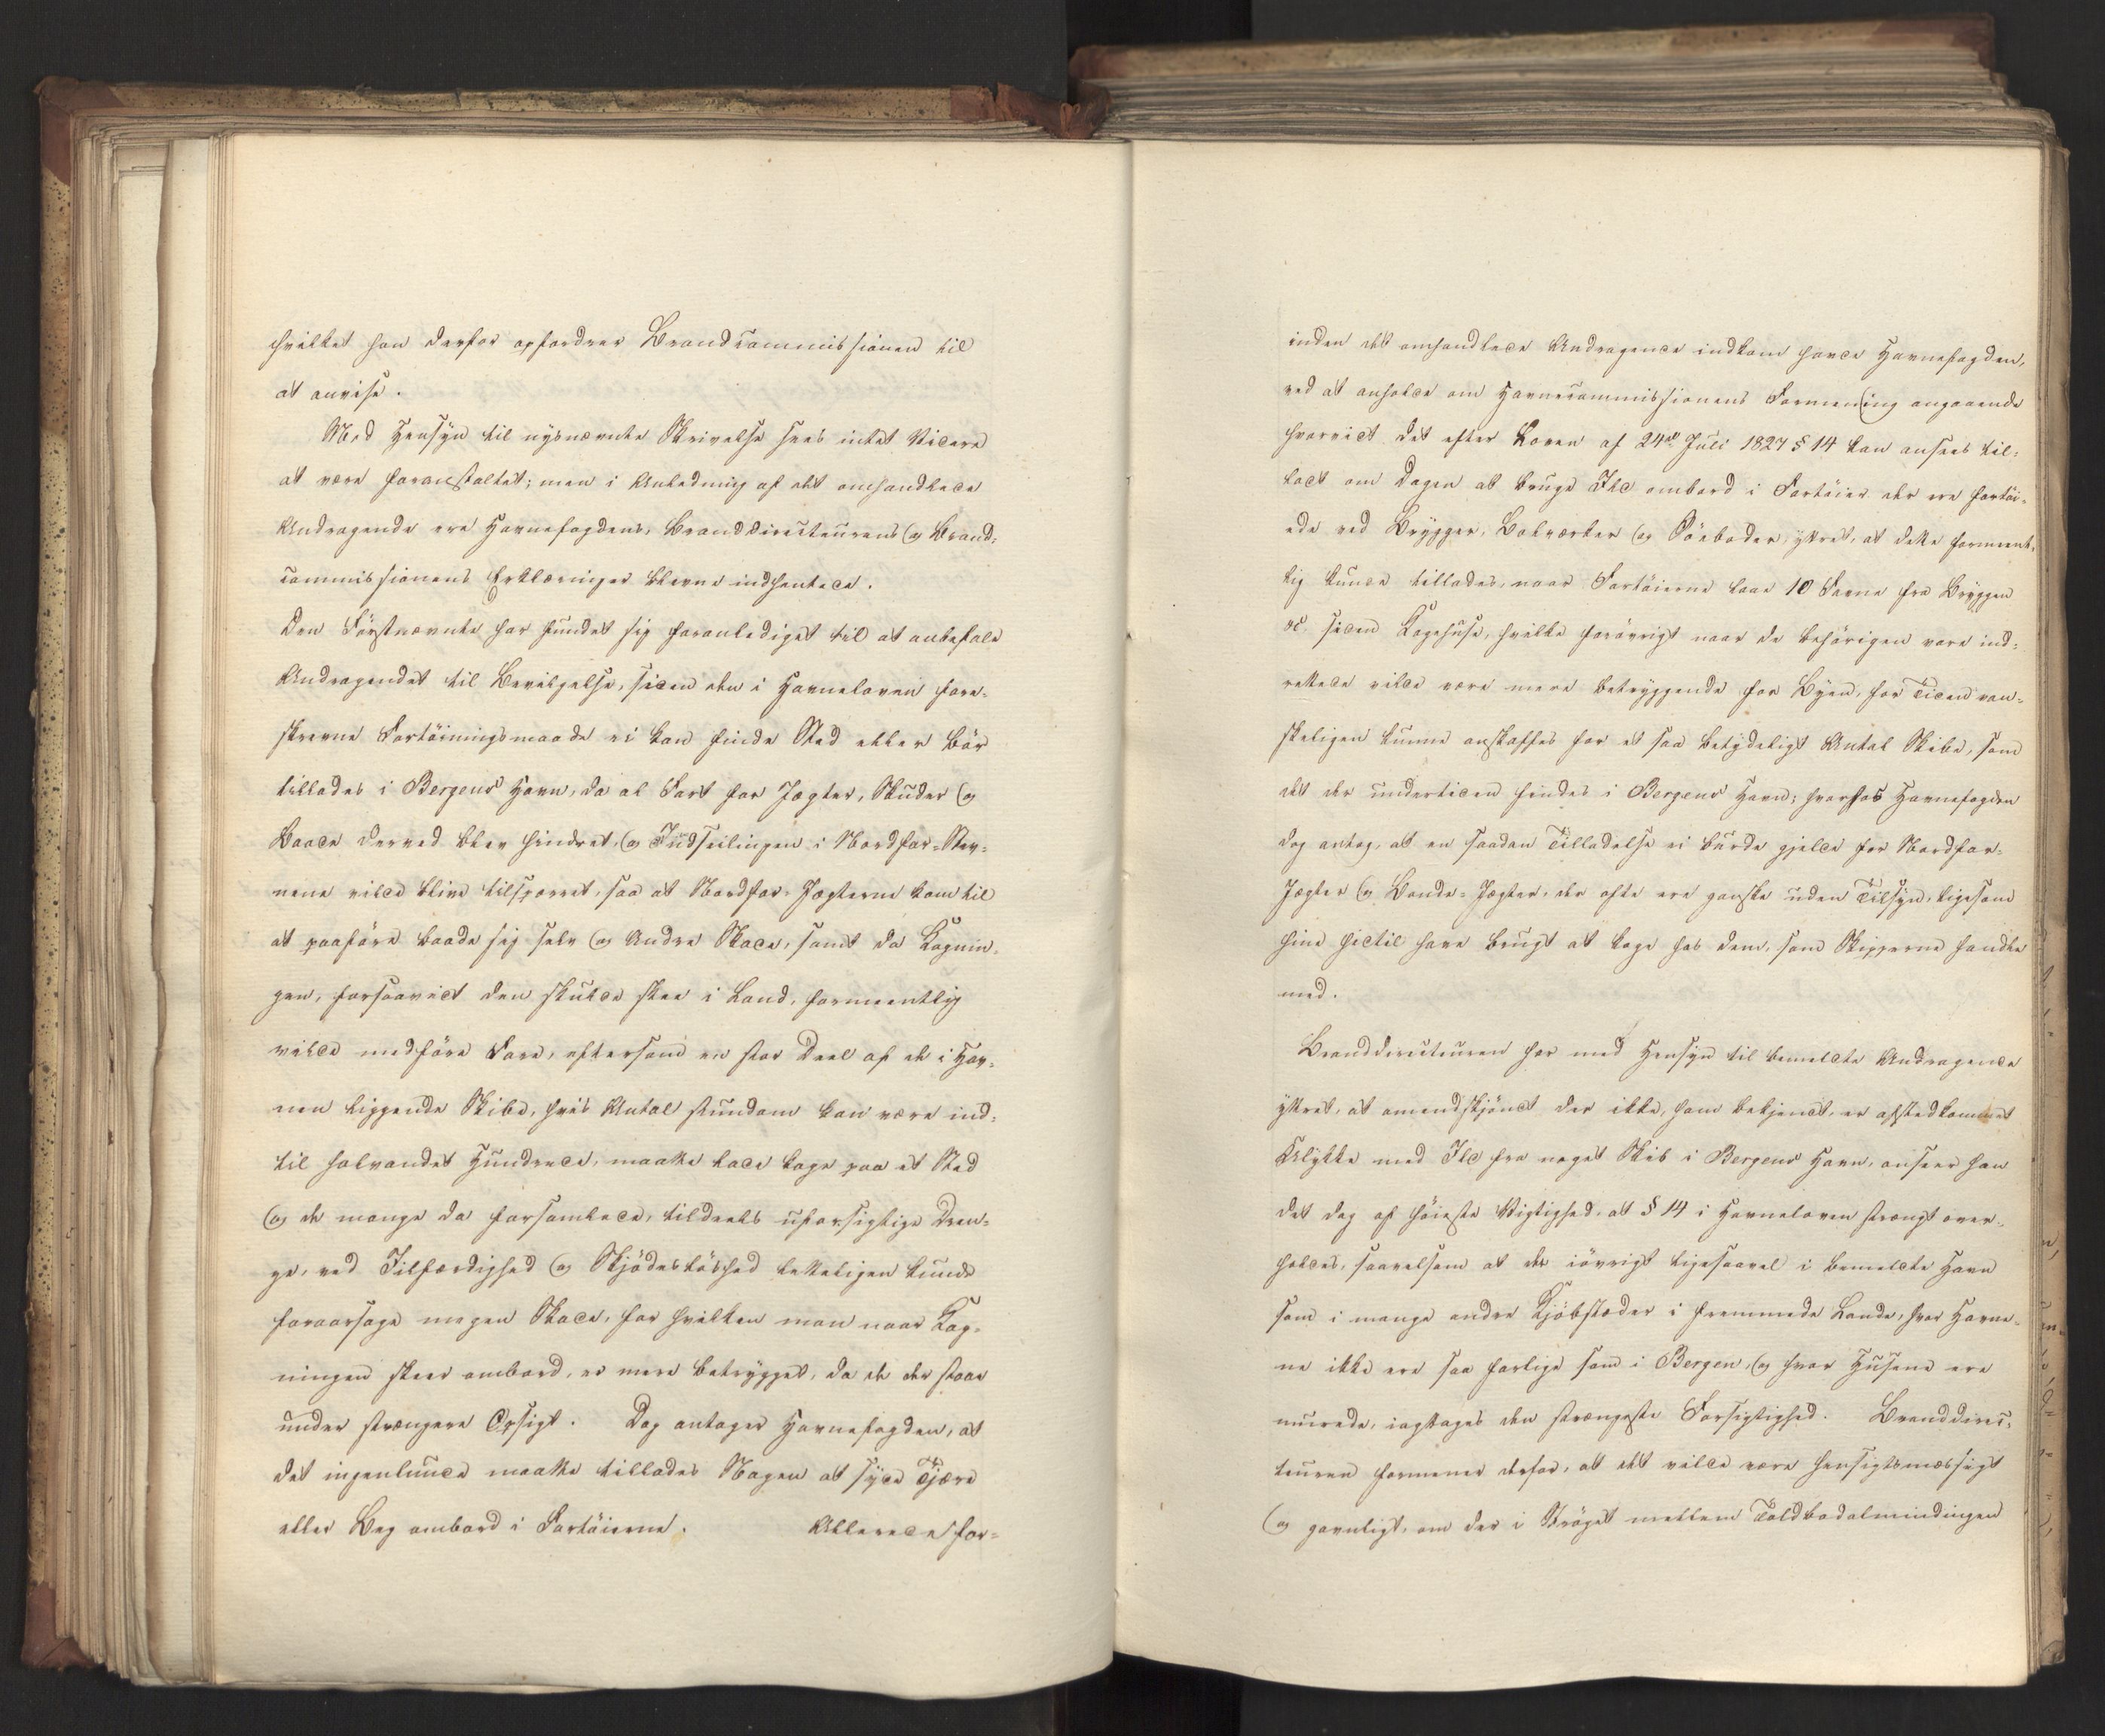 hvilket han derfor opfordrer Brandcommissionen til
at anvise.
Med Hensyn til nysnævnte Skrivelse sees intet Videre
at være foranstaltet; men i Anledning af det omhandlede
Andragende ere Havnefogdens, Branddirecteurens og Brand-
commissionens Erklæringer blevne indhentede.
Den Førstnævnte har fundet sig foranlediget til at anbefale
Andragendet til Bevilgelse, siden den i Havneloven fore-
skrevne Fortøiningsmaade ei kan finde Sted eller bør
tillades i Bergens Havn, da al Fart for Jægter, Skuder og
Baade derved blev hindret, og Indseilingen i Nordfar-Stev-
nene vilde blive tilsperret, saa at Nordfar-Jægterne kom til
at paaføre baade sig selv og Andre Skade, samt da Kognin-
gen, forsaavidt den skulde skee i Land, formeentlig
vilde medføre Fare, eftersom en stor Deel af de i Hav-
nen liggende Skibe, hvis Antal stundom kan være ind-
til halvandet Hundrede, maatte lade koge paa et Sted
og de mange da forsamlede, tildeels uforsigtige Dren-
ge, ved Iilfærdighed og Skjødesløshed letteligen kunde
foraarsage megen Skade, for hvilken man naar Kog-
ningen skeer ombord, er mere betrygget, da de der staae
under strængere Opsigt. Dog antager Havnefogden, at
det ingenlunde maatte tillades Nogen at syde Tjære
eller Beg ombord i Fartøierne. Allerede for-
inden det omhandlede Andragende indkom havde Havnefogden,
ved at anholde om Havnecommissionens Formening angaaende
hvorvidt det efter Loven af 24de Juli 1827 § 14 kan ansees til-
ladt om Dagen at bruge Ild ombord i Fartøier der ere fortøi-
ede ved Brygger, Bolværker og Søeboder, yttret, at dette formeent-
lig kunde tillades, naar Fartøierne laae 10 Favne fra Bryggen
&c. siden Kogehuse, hvilke forøvrigt naar de behørigen vare ind-
rettede vilde være mere betryggende for Byen, for Tiden van-
skeligen kunne anskaffes for et saa betydeligt Antal Skibe, som
det der undertiden findes i Bergens Havn; hvorhos Havnefogden
dog antog, at en saadan Tilladelse ei burde gjelde for Nordfar-
Jægter og Bonde-Jægter, der ofte ere ganske uden Tilsyn, ligesom
hine hidtil have brugt at koge hos dem, som Skipperne handle
med.
Branddirecteuren har med Hensyn til bemeldte Andragende
yttret, at omendskjøndt der ikke, ham bekjendt, er afstedkommet
Ulykke med Ild fra noget Skib i Bergens Havn, anseer han
det dog af høieste Vigtighed, at § 14 i Havneloven strængt over-
holdes, saavelsom at der iøvrigt ligesaavel i bemeldte Havn
som i mange andre Kjøbstæder i fremmede Lande, hvor Havne-
ne ikke ere saa farlige som i Bergen, og hvor Husene ere
murede, iagttages den strængeste Forsigtighed. Branddirec-
teuren formener derfor, at det vilde være hensigtsmæssigt
og gavnligt, om der i Strøget mellem Toldbodalmindingen